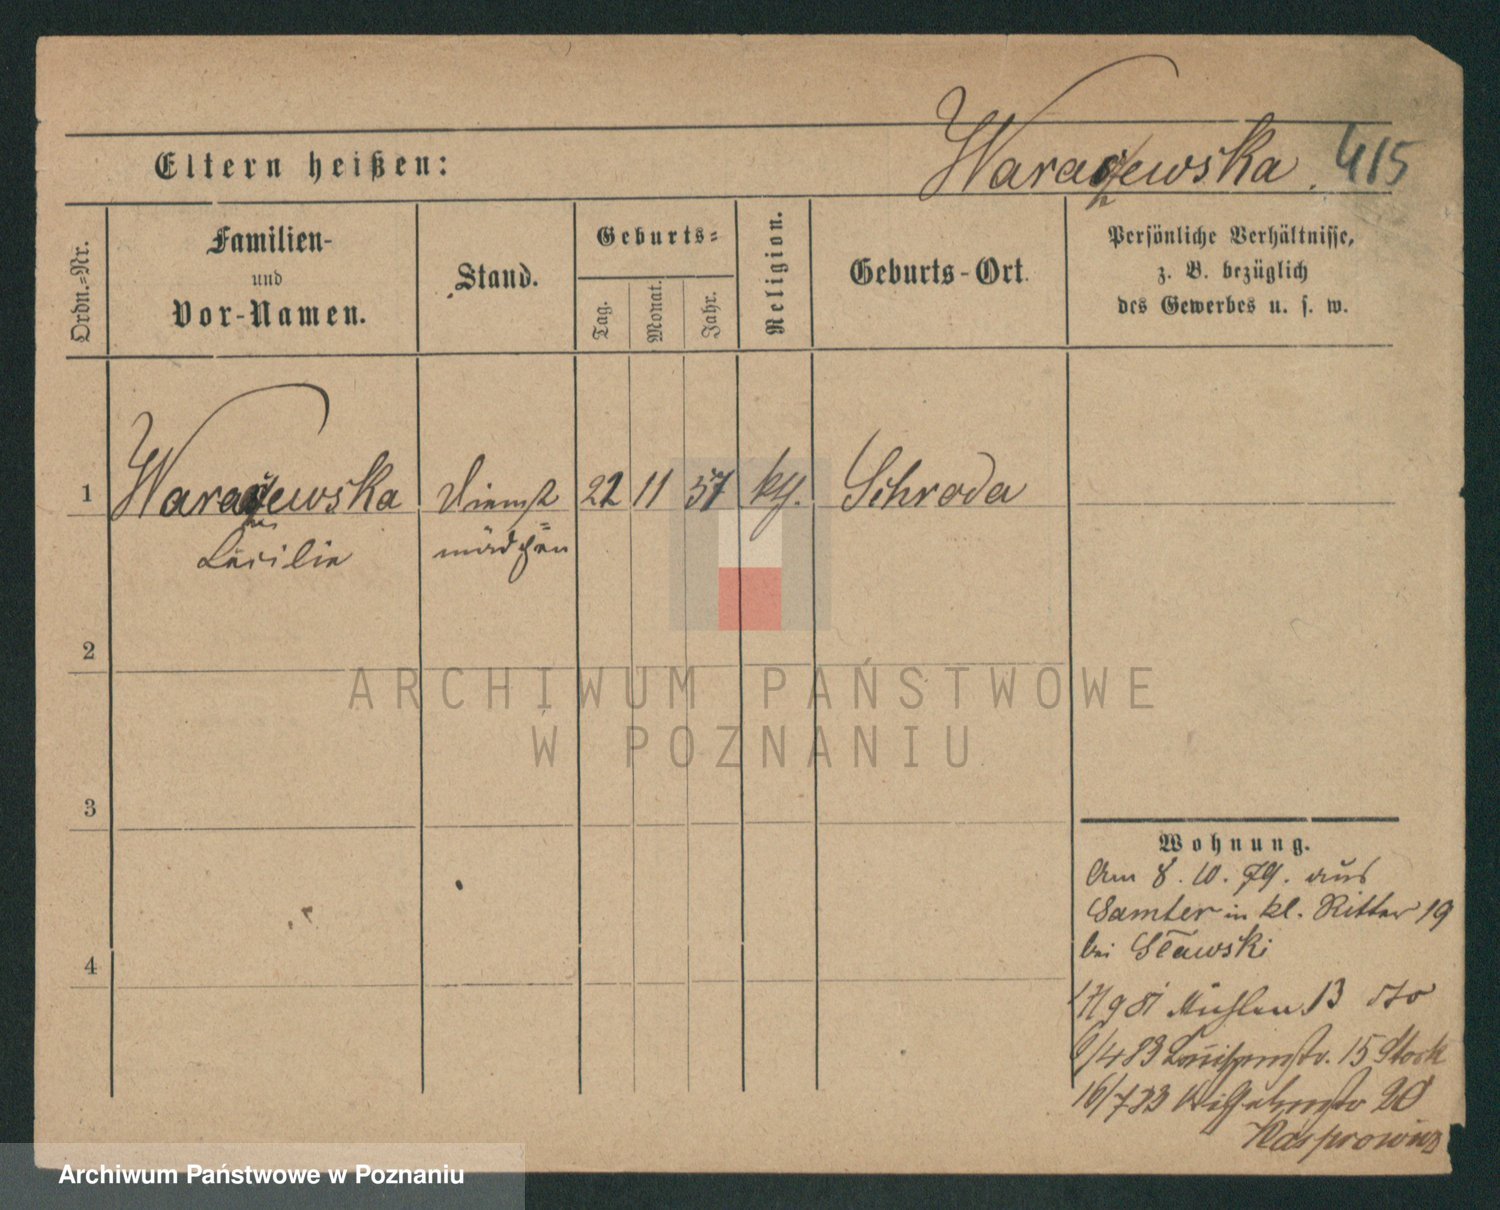 Waraczewska. 415
Eltern heißen:
Ordn.-Nr.
Familien-
und
Vor-Namen.
Stand.
Geburts-
Tag.
Monat.
Jahr.
Religion.
Geburts-Ort.
Persönliche Verhältnisse,
z. B. bezüglich
des Gewerbes u. s. w.
1 Waraczewska Dienst 22 11 57 kth. Schroda
Cäcilie mädchen
2
3
4
ARCHIWUM PAŃSTWOWE
W POZNANIU
Wohnung.
Am 8. 10. 79. aus
Samter in kl. Ritter 19
bei Sławski
17/9 81 Mühlen 13
6/4 83 Louisenstr. 15 Stock
16/7 83 Wilhelmstr 20
Kasprowicz
Archiwum Państwowe w Poznaniu